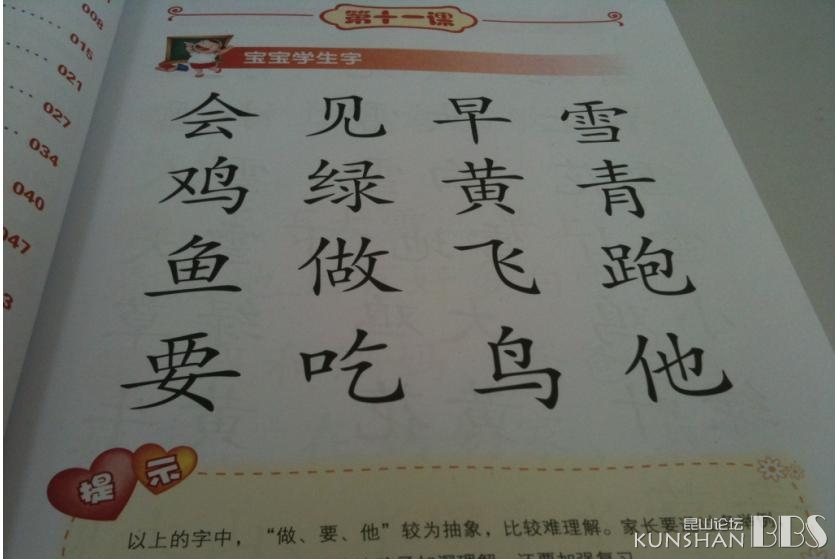 008
015
021
027
034
040
047
3
第十一课
宝宝学生字
会 见 早 雪
鸡 绿 黄 青
鱼 做 飞 跑
要 吃 鸟 他
提示
以上的字中，“做、要、他”较为抽象，比较难理解。家长要
理解，还要加强复习
昆山论坛
KUNSHAN BBS